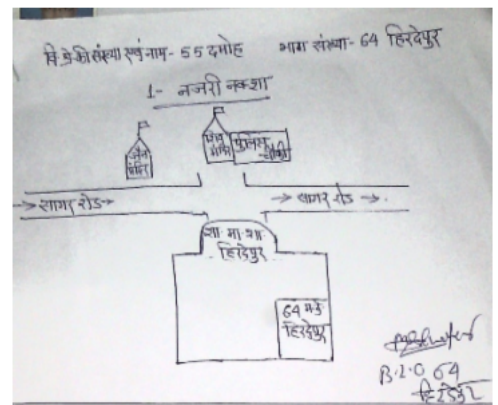 वि.क्षे की संख्या एवं नाम - 55 दमोह भाग संख्या - 64 हिरदेपुर
1- नजरी नक्शा
जैन
मंदिर
शिव
मंदिर
पुलिस
चौकी
→ सागर रोड →
→ सागर रोड →
शा. मा. शा.
हिरदेपुर
64 म.के.
हिरदेपुर
B.L.O 64
हिरदेपुर